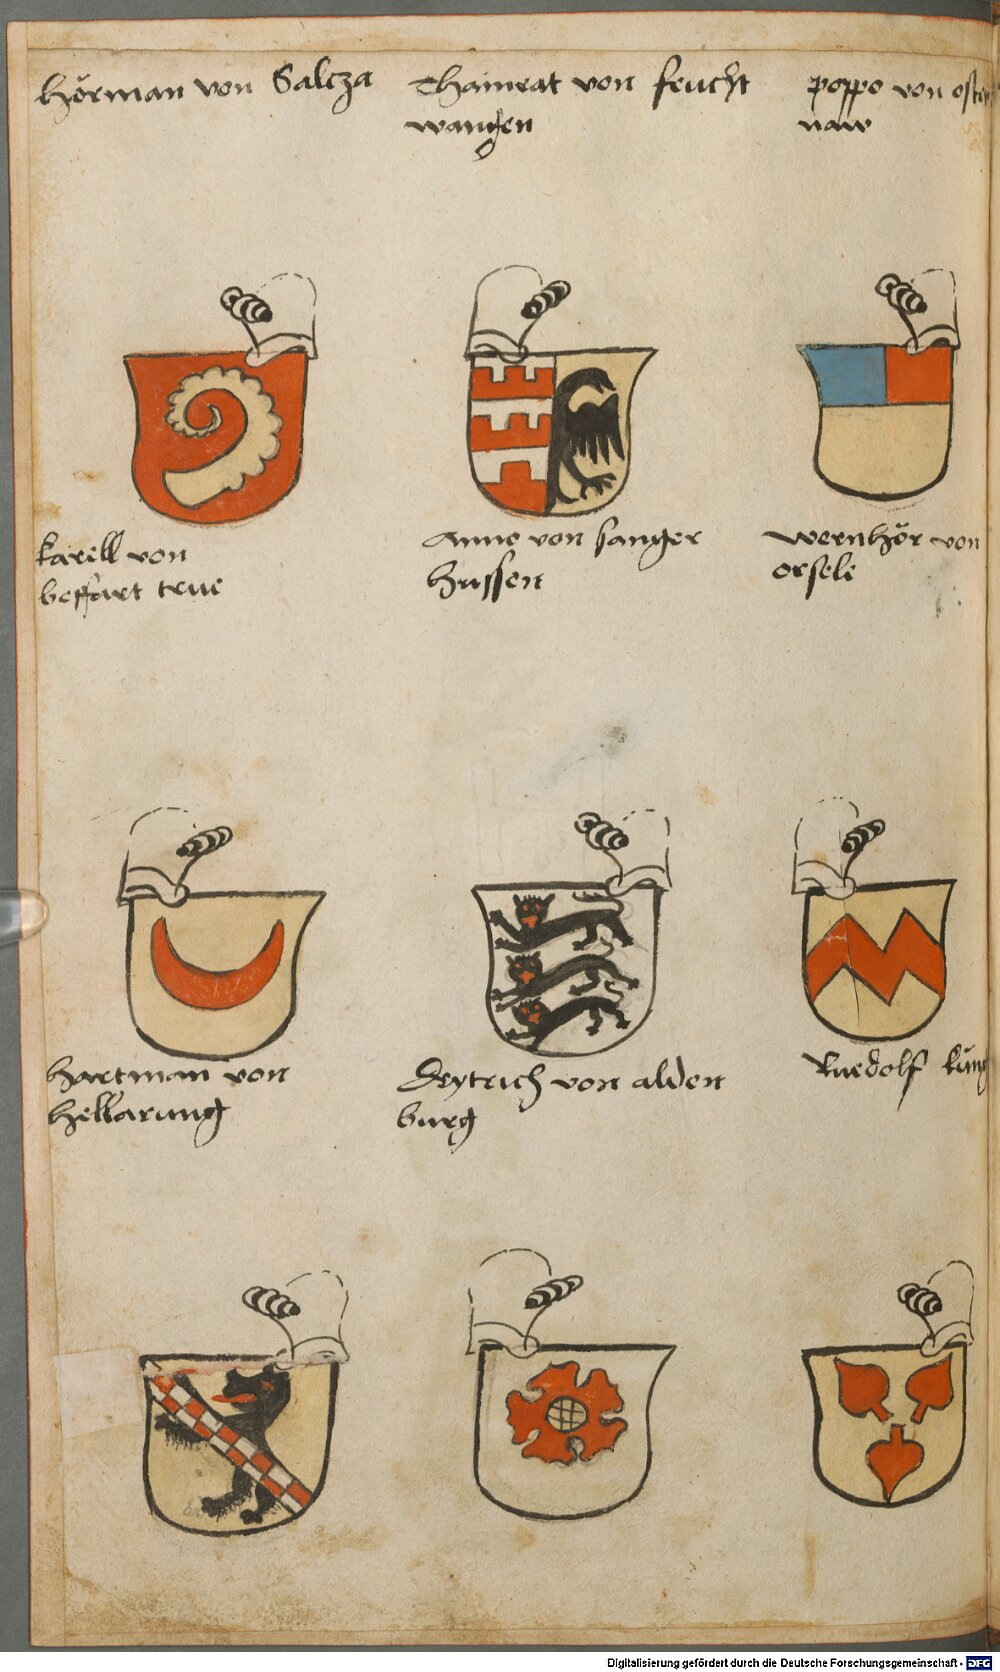 Hörman von Salcza
Chainrat von feucht
wangen
poppo von oster
naw
karell von
beffart true
Anno von sanger
hussen
wernhör von
orsele
hartman von
hellarung
deytrich von alden
burg
Ruedolf küng
Digitalisierung gefördert durch die Deutsche Forschungsgemeinschaft - DFG